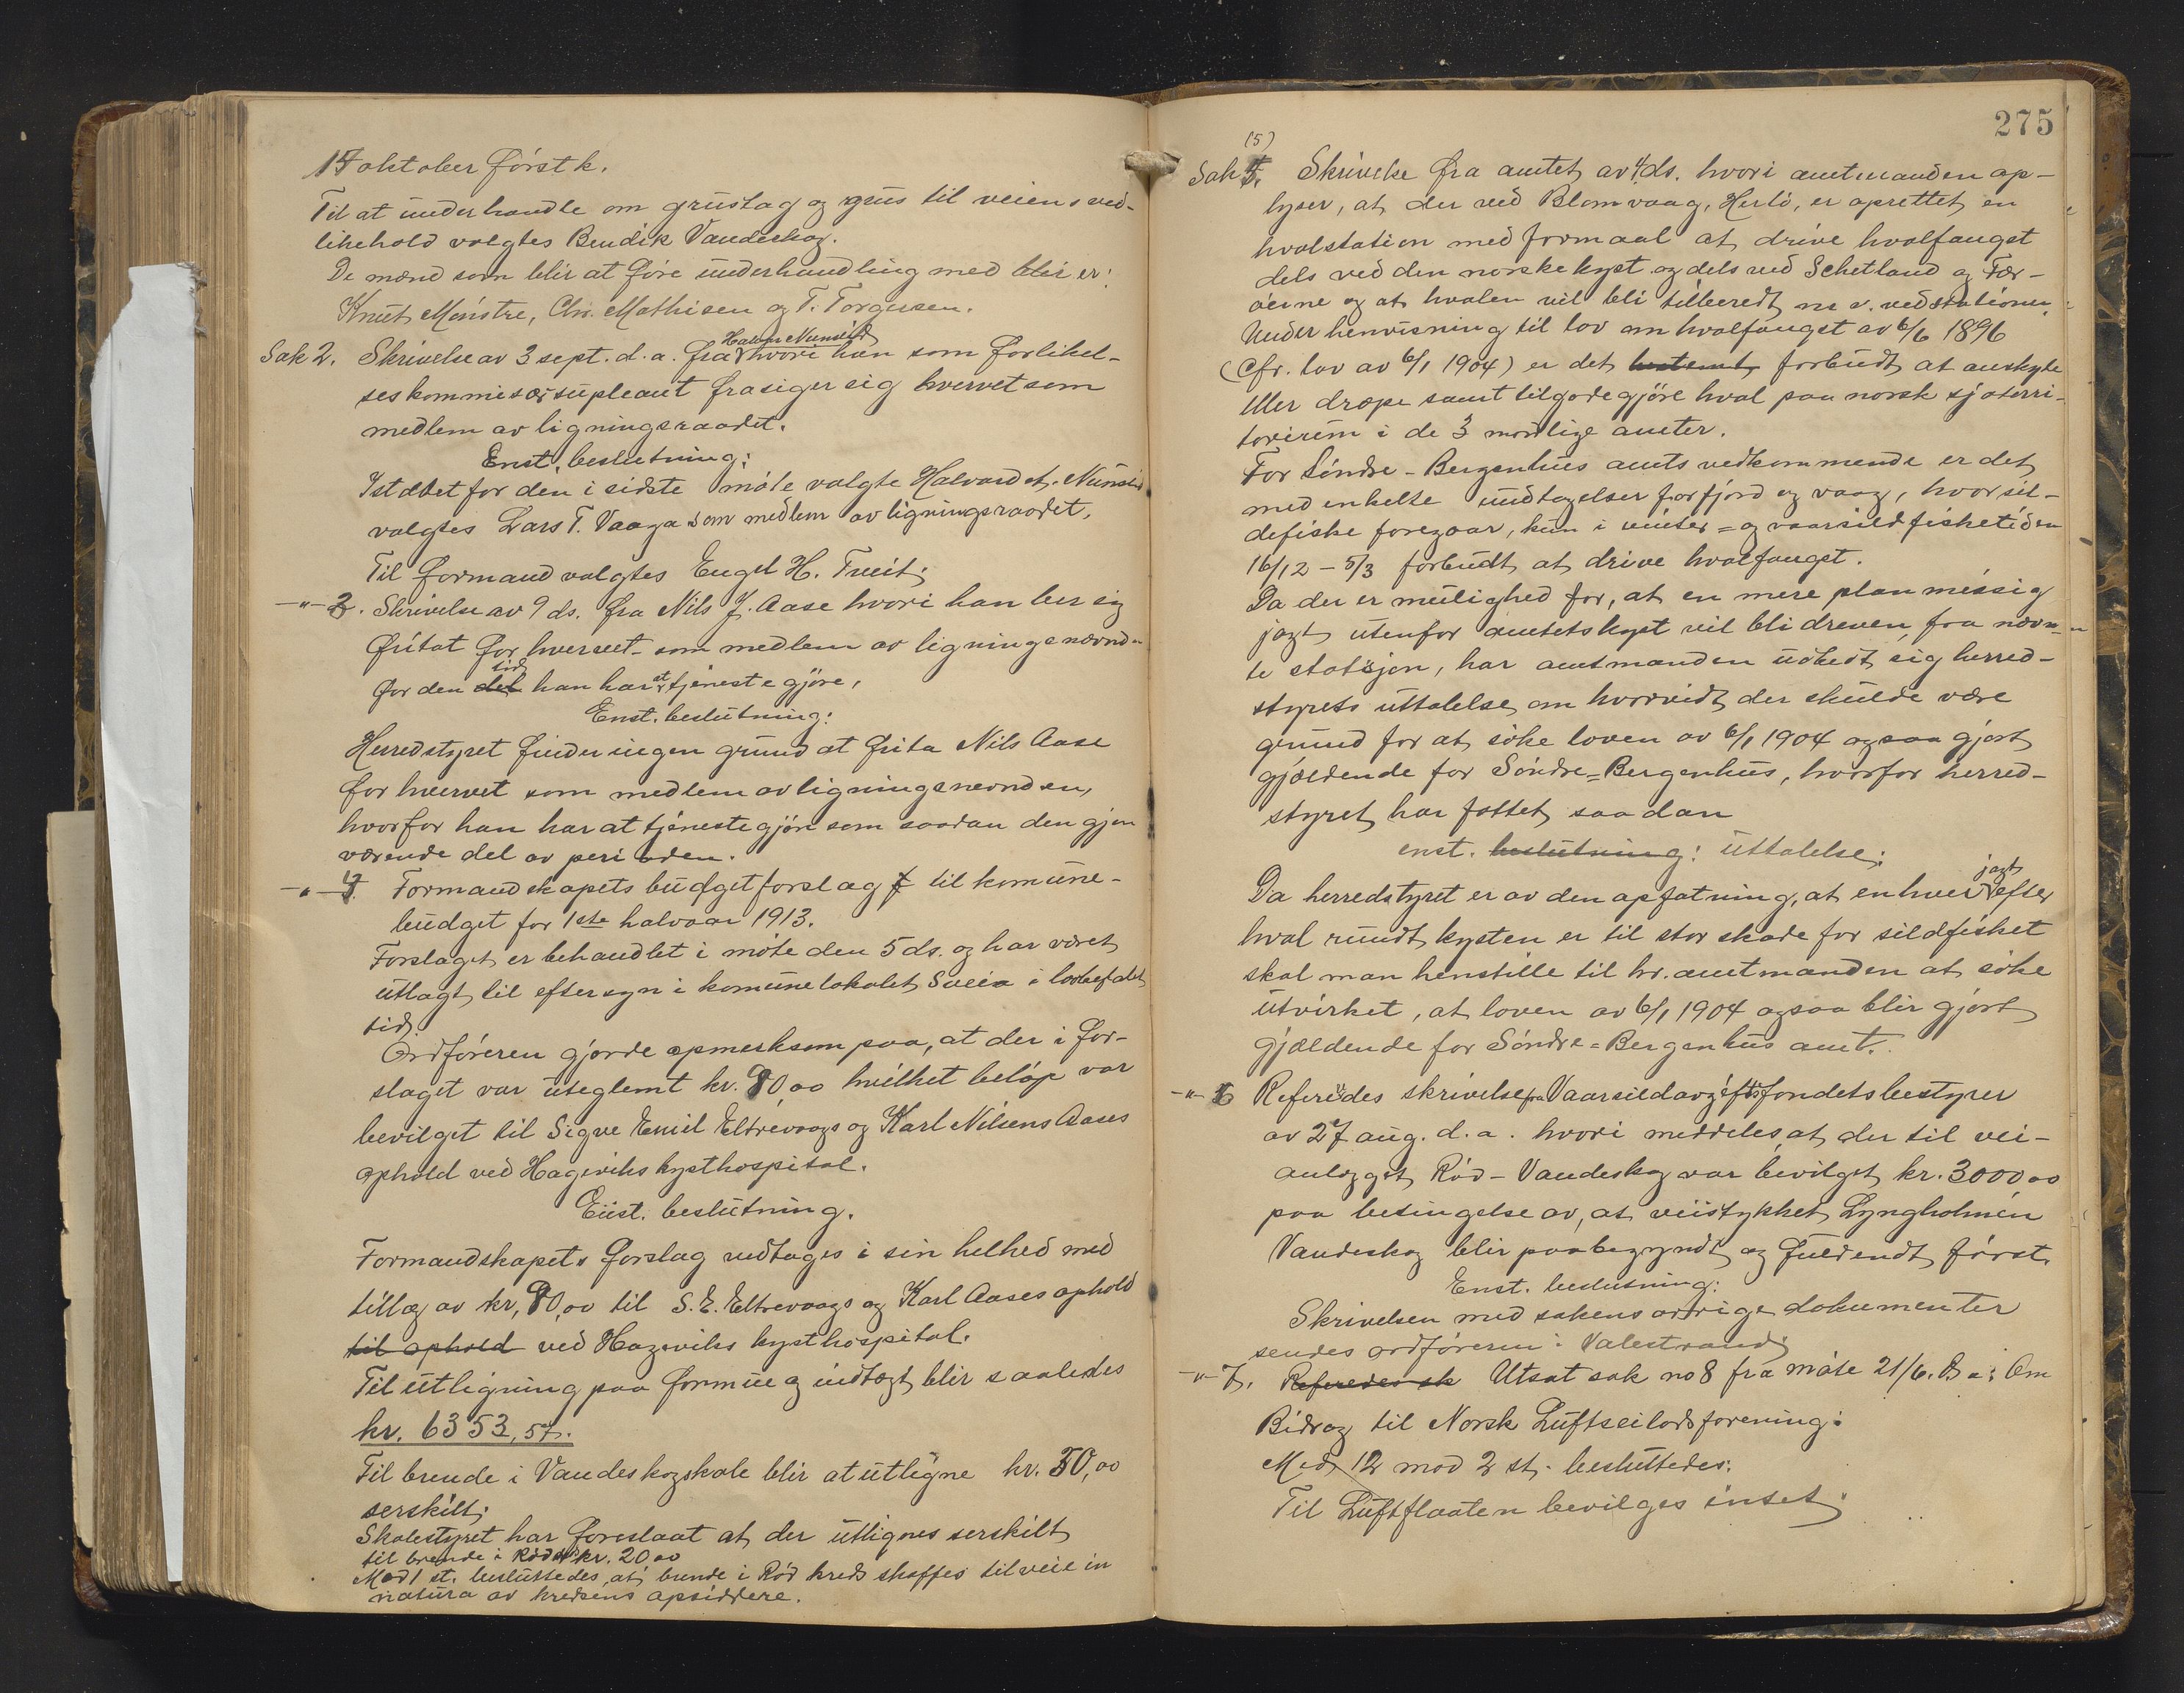 14 oktober først k.
Til at underhandle om grustag og grus til veiens ved-
likehold valgtes Bendik Vandeskog.
De mænd som blir at føre underhandling med blir er:
Knut Mønstre, Chr. Mathisen og T. Torgersen.
Sak 2. Skrivelse av 3 sept. d.a. fra Halvor Nernsid hvori han som forlikel-
seskommisærsupleant frasiger sig hvervet som
medlem av ligningsraadet.
Enst. beslutning:
Istædet for den i sidste møte valgte Halvard
valgtes Lars T. Vaaga som medlem av ligningsraadet.
Til formand valgtes Engel H. Tveit.
-"- 3. Skrivelse av 9 ds. fra Nils J. Aase hvori han ber sig
fritat for hvervet som medlem av ligningsnævnd-
for den del tid han har at tjenestegjøre.
Enst. beslutning:
Herredstyret finder ingen grund at frita Nils Aase
for hvervet som medlem av ligningsnevnden,
hvorfor han har at tjenestegjøre som saadan den gjen
værende del av perioden.
-"- 4 Formandskapets budgetforslag til komune-
budget for 1ste halvaar 1913.
Forslaget er behandlet i møte den 5 ds. og har været
utlagt til eftersyn i komunelokalet Sveio i lovbefalet
tid.
Ordføreren gjorde opmerksom paa, at der i for-
slaget var uteglemt kr. 80,00 hvilket beløp var
bevilget til Sigve Emil Eltrevaags og Karl Nilsens Aases
ophold ved Hageviks kysthospital.
Enst. beslutning.
Formandskapets forslag vedtages i sin helhed med
tillæg av kr. 80,00 til S. E. Eltrevaags og Karl Aases ophold
til ophold ved Hageviks kysthospital.
Til utligning paa formue og indtægt blir saaledes
kr. 6353,57.
Til brende i Vandeskogskole blir at utligne kr. 30,00
serskilt.
Skolestyret har foreslaat at der utlignes serskilt
til brende i Rød kr. 20 00
Mod 1 st. besluttedes at brende i Rød kreds skaffes tilveie in
natura av kredsens opsiddere.
275
(5)
Sak 5. Skrivelse fra amtet av 4 ds. hvori amtmanden op-
lyser, at der ved Blomvaag, Herlø, er oprettet en
hvalstation med formaal at drive hvalfangst
dels ved den norske kyst og dels ved Schetland og Fær-
øerne og at hvalen vil bli tilberedt m. v. ved stationen.
Under henvisning til lov om hvalfangst av 6/6 1896
(Cfr. lov av 6/1 1904) er det bestemt forbudt at anskyte
eller dræpe samt tilgodegjøre hval paa norsk sjøterri-
torierum i de 3 nordlige amter.
For Søndre-Bergenhus amts vedkommende er det
med enkelte undtagelser for fjord og vaag, hvor sil-
defiske foregaar, kun i vinter- og vaarsildfisketiden
16/12 - 5/3 forbudt at drive hvalfangst.
Da der er mulighed for, at en mere planmæssig
jagt utenfor amtets kyst vil bli dreven fra nævn-
te statsjon, har amtmanden udbedt sig herred-
styrets uttalelse om hvorvidt der skulde være
grund for at søke loven av 6/1 1904 ogsaa gjort
gjældende for Søndre-Bergenhus, hvorfor herred-
styret har fattet saadan
enst. beslutning: uttalelse:
Da herredstyret er av den opfatning, at enhver jagt efter
hval rundt kysten er til stor skade for sildfisket
skal man henstille til hr. amtmanden at søke
utvirket, at loven av 6/1 1904 ogsaa blir gjort
gjældende for Søndre-Bergenhus amt.
-"- 6 Referedes skrivelse fra Vaarsildavgiftsfondets bestyrer
av 27 aug. d.a. hvori meddeles at der til vei-
anlægget Rød-Vandeskog var bevilget kr. 3000 00
paa betingelse av, at veistykket Lyngholmen
Vandeskog blir paabegyndt og fuldendt først.
Enst. beslutning:
Skrivelsen med sakens øvrige dokumenter
sendes ordføreren i Valestrand.
-"- 7. Referedes sk Utsat sak no 8 fra møte 21/6. d a: Om
Bidrag til Norsk Luftseiladsforening:
Med 12 mod 2 st. besluttedes:
Til Luftflaaten bevilges intet.